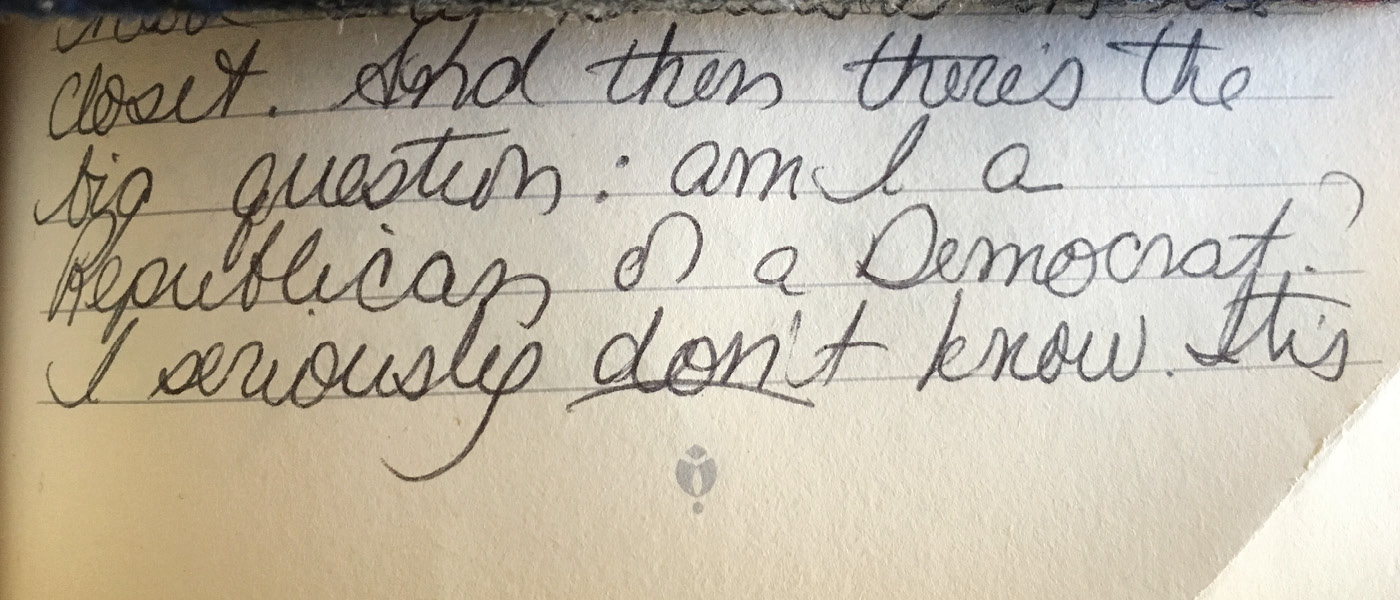 closet. And then there's the
big question: am I a
Republican or a Democrat?
I seriously don't know. It's